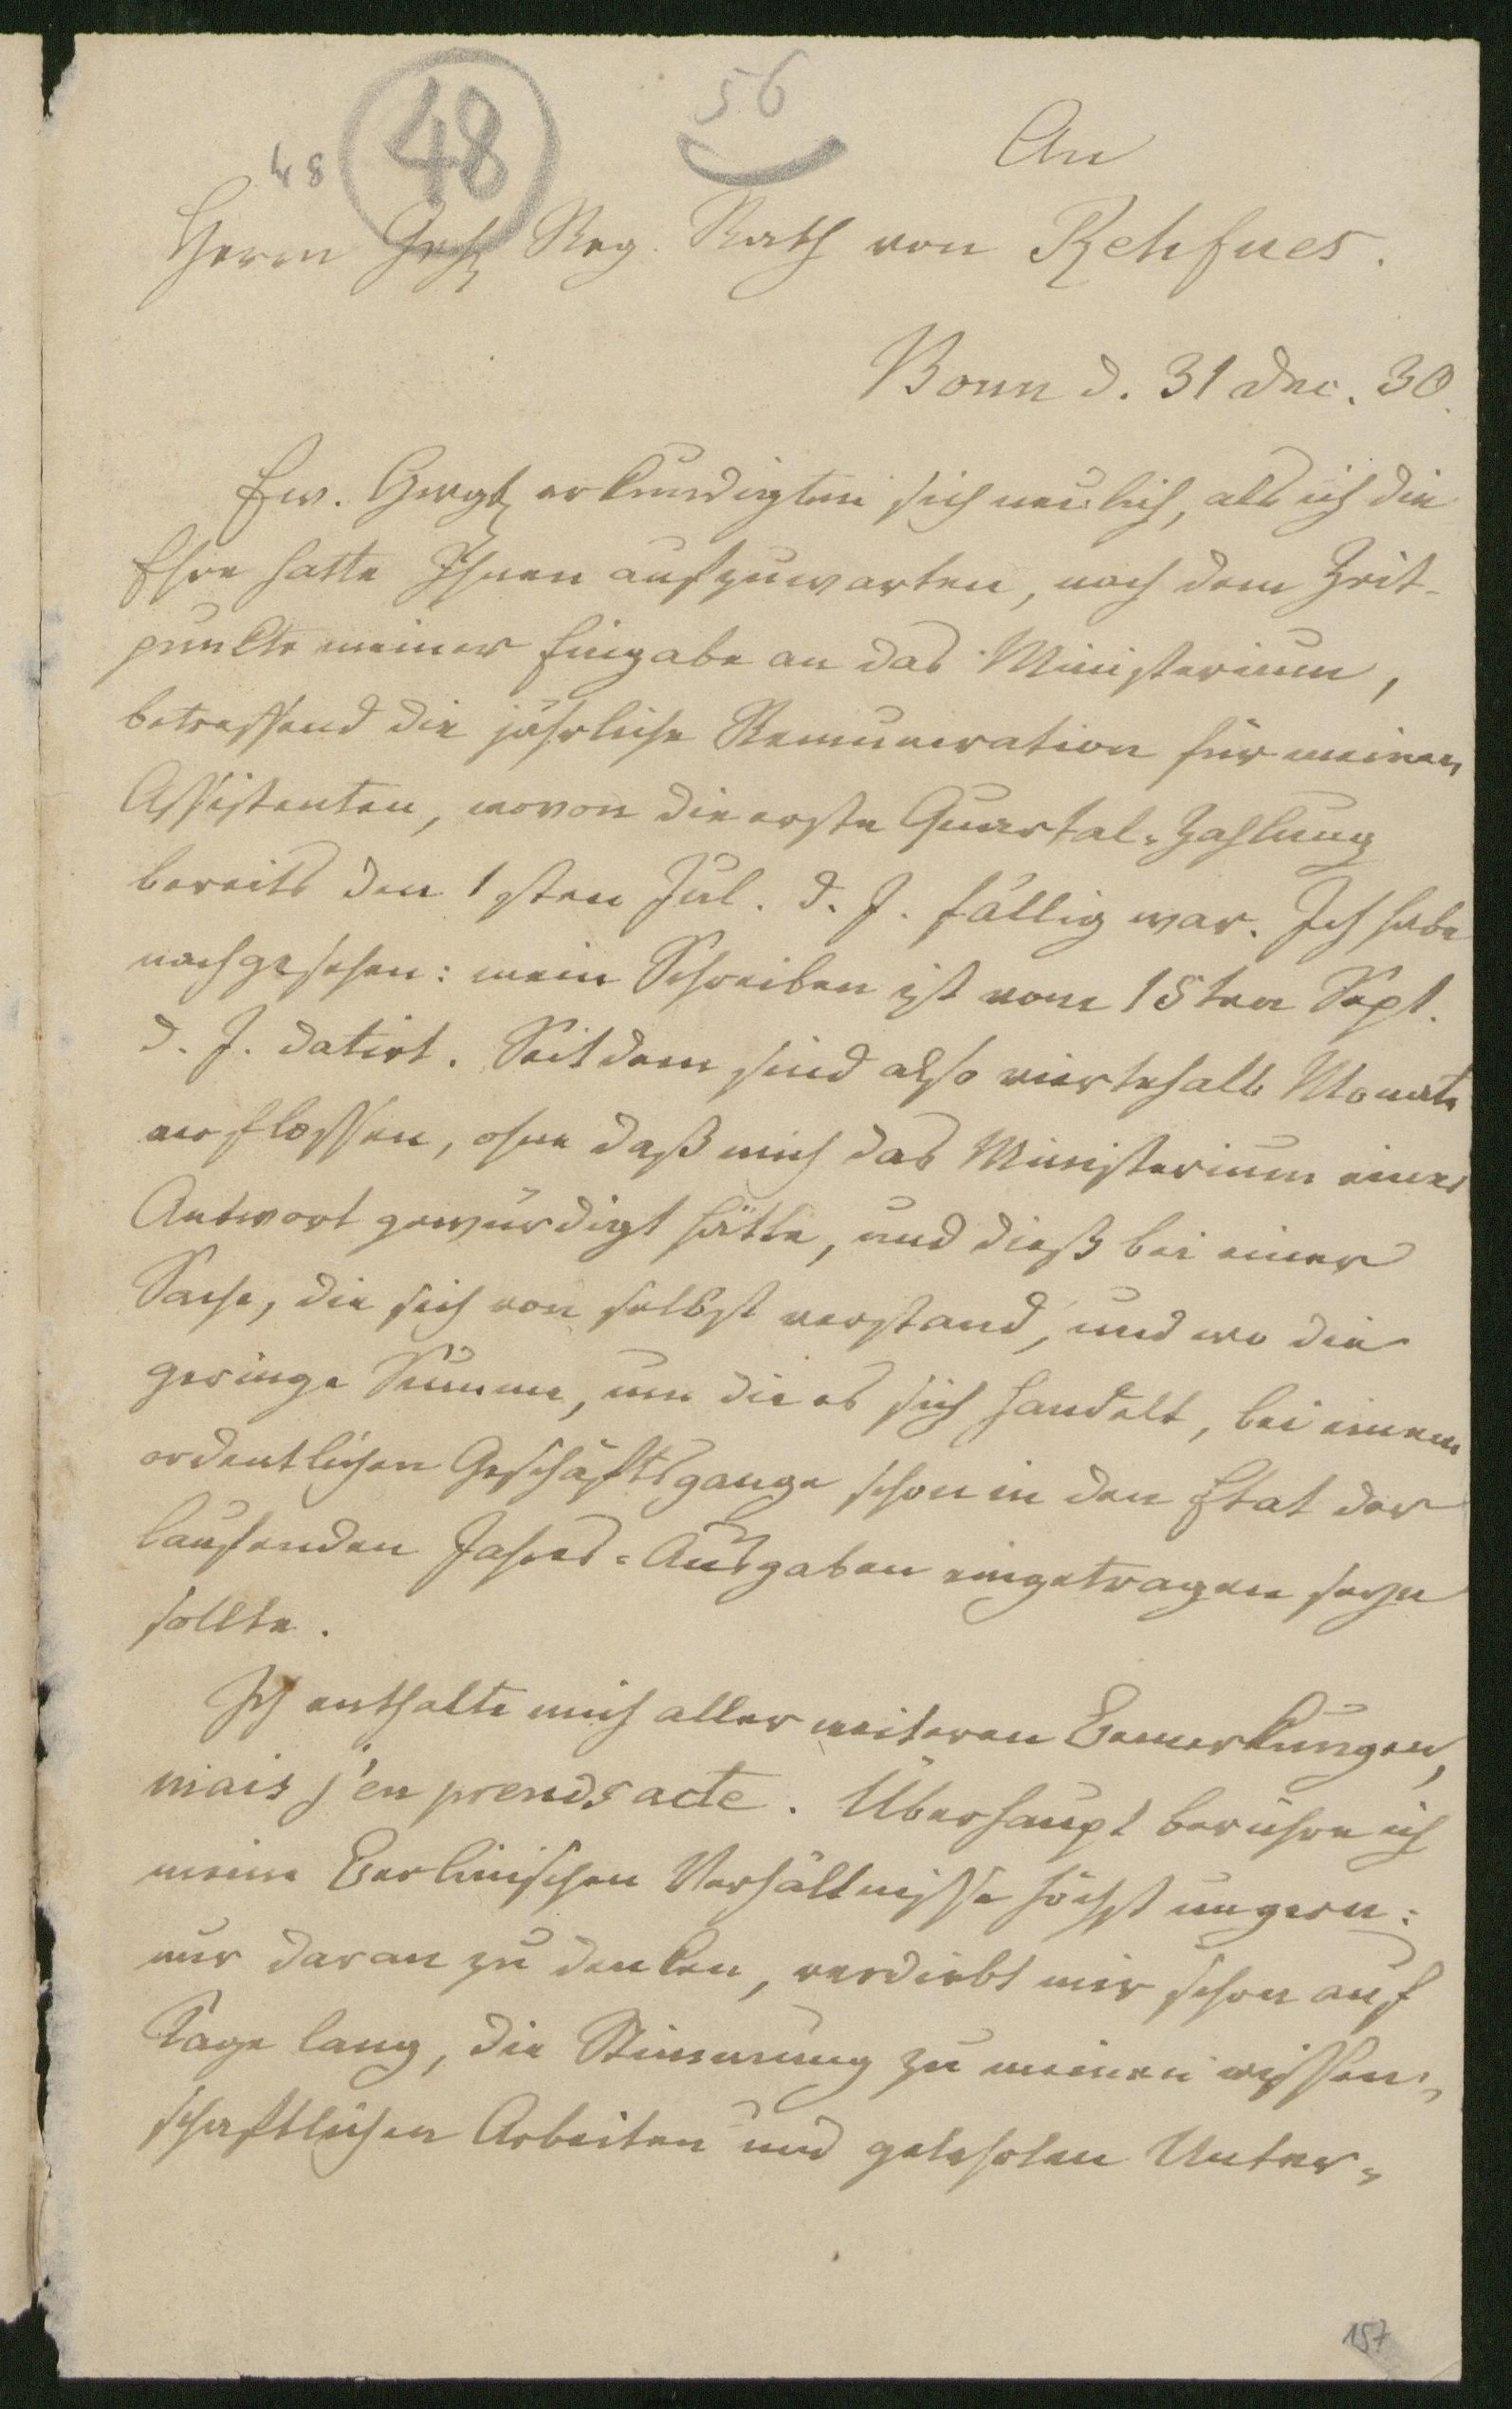 48 56
48
An
Herrn Geh Reg. Rath von Rehfues.
Bonn d. 31 Dec. 30.
Ew. erkundigten sich neulich, als ich die
Ehre hatte Ihnen aufzuwarten, nach dem Zeit-
punkte meiner Eingabe an das Ministerium,
betreffend die jährliche Remuneration für meinen
Assistenten, wovon die erste Quartal-Zahlung
bereits den 1sten Jul. d. J. fällig war. Ich habe
nachgesehen: mein Schreiben ist vom 15ten Sept.
d. J. datirt. Seitdem sind also viertehalb Monate
verflossen, ohne daß mich das Ministerium einer
Antwort gewürdigt hätte, und dieß bei einer
Sache, die sich von selbst verstand, und wo die
geringe Summe, um die es sich handelt, bei einem
ordentlichen Geschäftsgange schon in den Etat der
laufenden Jahres-Ausgaben eingetragen seyn
sollte.
Ich enthalte mich aller weiteren Bemerkungen,
mais j'en prends acte. Überhaupt berühre ich
meine Berlinischen Verhältnisse höchst ungern:
nur daran zu denken, verdirbt mir schon auf
Tage lang, die Stimmung zu meinen wissen-
schaftlichen Arbeiten und gelehrten Unter-
157